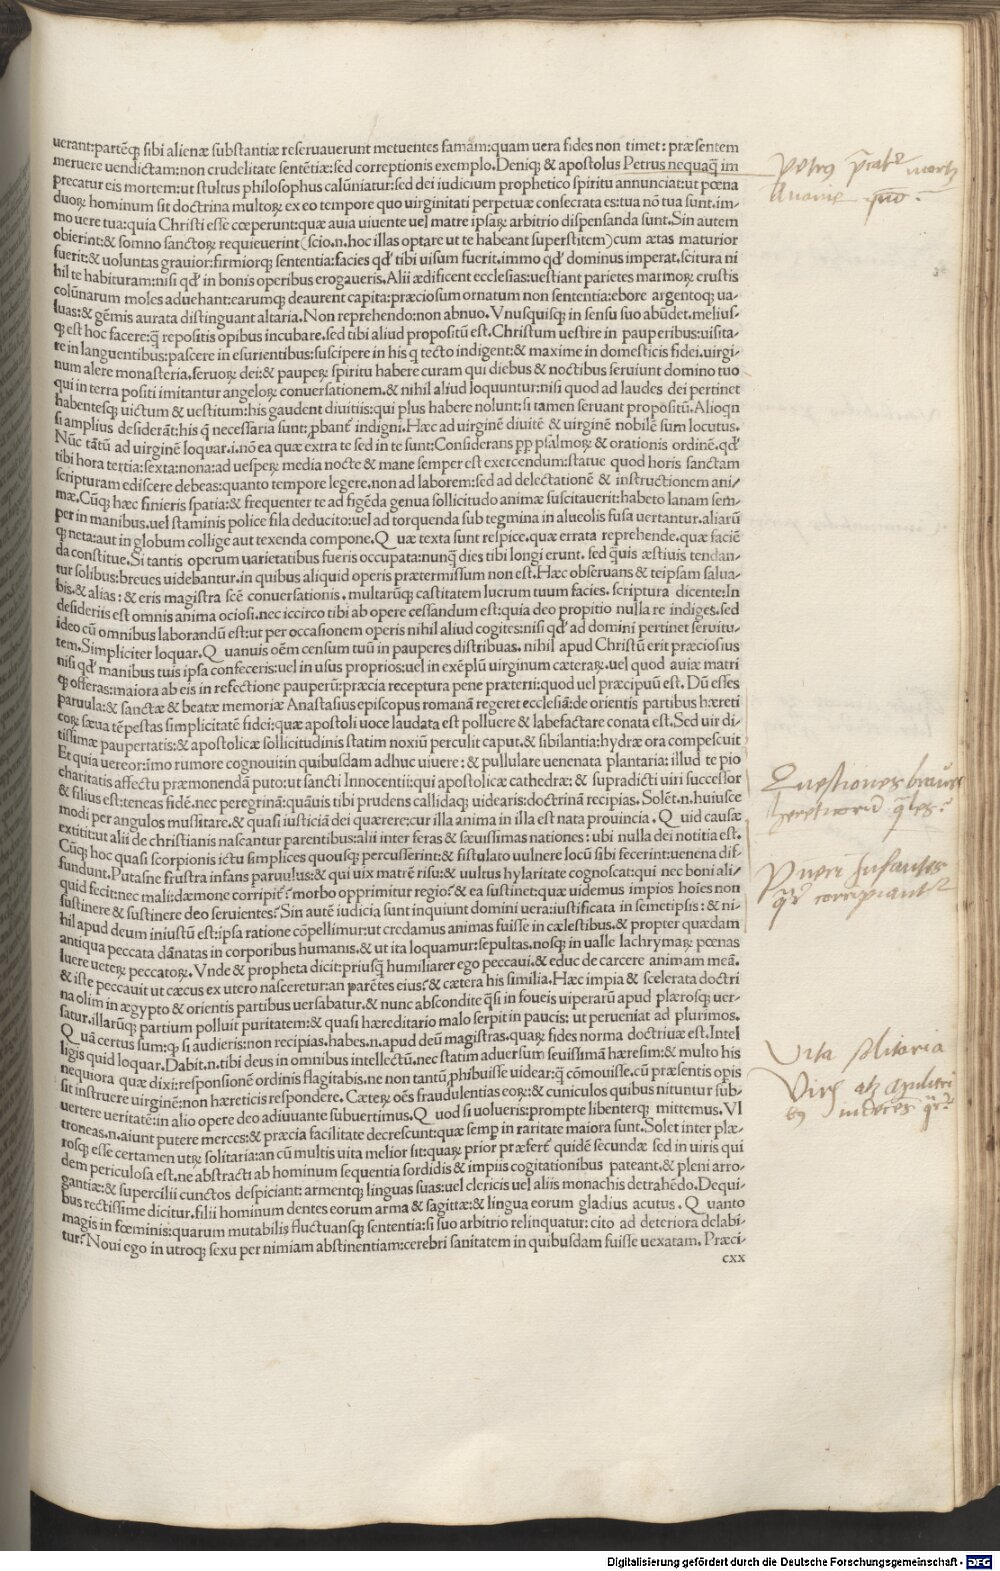 uerant:partẽqꝫ sibi alienæ substantiæ reseruauerunt metuentes famãm:quam uera fides non timet: præsentem
meruere uendictam:non crudelitate sentẽtiæ:sed correptionis exemplo.Deniqꝫ & apostolus Petrus nequaq̃ im
precatur eis mortem:ut stultus philosophus calũniatur:sed dei iudicium prophetico spiritu annunciat:ut pœna
duoꝝ hominum sit doctrina multoꝝ ex eo tempore quo uirginitati perpetuæ consecrata es:tua nõ tua sunt.im-
mo uere tua:quia Christi esse cœperunt:quæ auia uiuente uel matre ipsaꝝ arbitrio dispensanda sunt.Sin autem
obierint:& somno sanctoꝝ requieuerint(scio.n.hoc illas optare ut te habeant superstitem)cum ætas maturior
fuerit:& uoluntas grauior:firmiorqꝫ sententia:facies qđ tibi uisum fuerit.immo qđ dominus imperat.scitura ni
hil te habituram:nisi qđ in bonis operibus erogaueris.Alii ædificent ecclesias:uestiant parietes marmoꝝ crustis
colũnarum moles aduehant:earumqꝫ deaurent capita:præciosum ornatum non sententia:ebore argentoqꝫ ua-
luas:& gẽmis aurata distinguant altaria.Non reprehendo:non abnuo.Vnusquisqꝫ in sensu suo abũdet.melius-
qꝫ est hoc facere:q̃ repositis opibus incubare.sed tibi aliud propositũ est.Christum uestire in pauperibus:uisita-
re in languentibus:pascere in esurientibus:suscipere in his q tecto indigent:& maxime in domesticis fidei.uirgi-
num alere monasteria.seruoꝝ dei:& paupeꝝ spiritu habere curam qui diebus & noctibus seruiunt domino tuo
qui in terra positi imitantur angeloꝝ conuersationem.& nihil aliud loquuntur:nisi quod ad laudes dei pertinet
habentesqꝫ uictum & uestitum:his gaudent diuitiis:qui plus habere nolunt:si tamen seruant propositũ.Alioqn
si amplius desiderãt:his q̃ necessaria sunt:ꝓbantˀ indigni.Hæc ad uirginẽ diuitẽ & uirginẽ nobilẽ sum locutus.
Nũc tãtũ ad uirginẽ loquar.i.nõ ea quæ extra te sed in te sunt:Considerans ꝓꝑ psalmoꝝ & orationis ordinẽ.qđ
tibi hora tertia:sexta:nona:ad uesperꝫ media nocte & mane semper est exercendum:statue quod horis sanctam
scripturam ediscere debeas:quanto tempore legere.non ad laborem:sed ad delectationẽ & instructionem ani-
mæ.Cũqꝫ hæc finieris spatia:& frequenter te ad figẽda genua sollicitudo animæ suscitauerit:habeto lanam sem-
per in manibus.uel staminis police fila deducito:uel ad torquenda sub tegmina in alueolis fusa uertantur.aliarũ
qꝫ neta:aut in globum collige aut texenda compone.Quæ texta sunt respice.quæ errata reprehende.quæ faciẽ
da constitue.Si tantis operum uarietatibus fueris occupata:nunq̃ dies tibi longi erunt. sed q̃uis æstiuis tendan-
tur solibus:breues uidebantur.in quibus aliquid operis prætermissum non est.Hæc obseruans & teipsam salua-
bis.& alias : & eris magistra scẽ conuersationis. multarũqꝫ castitatem lucrum tuum facies. scriptura dicente:In
desideriis est omnis anima ociosi.nec iccirco tibi ab opere cessandum est:quia deo propitio nulla re indiges.sed
ideo cũ omnibus laborandũ est:ut per occasionem operis nihil aliud cogites:nisi qđ ad domini pertinet seruitu-
tem.Simpliciter loquar.Quanuis oẽm censum tuũ in pauperes distribuas. nihil apud Christũ erit præciosius
nisi qđ manibus tuis ipsa confeceris:uel in usus proprios:uel in exẽplũ uirginum cæteraꝝ.uel quod auiæ matri
qꝫ offeras:maiora ab eis in refectione pauperũ:præcia receptura pene præterii:quod uel præcipuũ est. Dũ esses
paruula:& sanctæ & beatæ memoriæ Anastasius episcopus romanã regeret ecclesiã:de orientis partibus hæreti
coꝝ sæua tẽpestas simplicitatẽ fidei:quæ apostoli uoce laudata est polluere & labefactare conata est.Sed uir di-
tissimæ paupertatis:& apostolicæ sollicitudinis statim noxiũ perculit caput.& sibilantia:hydræ ora compescuit
Et quia uereor:imo rumore cognoui:in quibusdam adhuc uiuere : & pullulare uenenata plantaria: illud te pio
charitatis affectu præmonendã puto:ut sancti Innocentii:qui apostolicæ cathedræ: & supradicti uiri successor
& filius est:teneas fidẽ.nec peregrinã:quãuis tibi prudens callidaqꝫ uidearis:doctrinã recipias. Solẽt.n.huiusce
modi per angulos mussitare.& quasi iusticiã dei quærere:cur illa anima in illa est nata prouincia. Quid causæ
extitit:ut alii de christianis nascantur parentibus:alii inter feras & sæuissimas nationes : ubi nulla dei notitia est.
Cũqꝫ hoc quasi scorpionis ictu simplices quousqꝫ percusserint:& fistulato uulnere locũ sibi fecerint:uenena dif-
fundunt.Putasne frustra infans paruulus:& qui uix matrẽ risu:& uultus hylaritate cognoscat:qui nec boni ali-
quid fecit:nec mali:dæmone corripitˀ?morbo opprimitur regio?& ea sustinet:quæ uidemus impios hoies non
sustinere & sustinere deo seruientes?Sin autẽ iudicia sunt inquiunt domini uera:iustificata in semetipsis: & ni-
hil apud deum iniustũ est:ipsa ratione cõpellimur:ut credamus animas fuisse in cælestibus.& propter quædam
antiqua peccata dãnatas in corporibus humanis.& ut ita loquamur:sepultas.nosqꝫ in ualle lachrymaꝝ pœnas
luere ueteꝝ peccatoꝝ.Vnde & propheta dicit:priusq̃ humiliarer ego peccaui.& educ de carcere animam meã.
& iste peccauit ut cæcus ex utero nasceretur:an parẽtes eius?& cætera his similia.Hæc impia & scelerata doctri
na olim in ægypto & orientis partibus uersabatur.& nunc abscondite q̃si in foueis uiperarũ apud plærosqꝫ uer-
satur.illarũqꝫ partium polluit puritatem:& quasi hæreditario malo serpit in paucis: ut perueniat ad plurimos.
Quã certus sum:q̃ si audieris:non recipias.habes.n.apud deũ magistras.quaꝝ fides norma doctriuæ est.Intel
ligis quid loquar.Dabit.n.tibi deus in omnibus intellectũ.nec statim aduersum seuissimã hæresim:& multo his
nequiora quæ dixi:responsionẽ ordinis flagitabis.ne non tantũ ꝓhibuisse uidear:q̃ cõmouisse.cũ præsentis opis
sit instruere uirginẽ:non hæreticis respondere. Cæteꝝ oẽs fraudulentias eoꝝ:& cuniculos quibus nituntur sub-
uertere ueritatẽ:in alio opere deo adiuuante subuertimus.Quod si uolueris:prompte libenterqꝫ mittemus. VI
troneas.n.aiunt putere merces:& præcia facilitate decrescunt:quæ semꝑ in raritate maiora sunt.Solet inter plæ-
rosqꝫ esse certamen utꝝ solitaria:an cũ multis uita melior sit:quaꝝ prior præfertˀ quidẽ secundæ sed in uiris qui
dem periculosa est.ne abstracti ab hominum sequentia sordidis & impiis cogitationibus pateant.& pleni arro-
gantiæ:& supercilii cunctos despiciant: armentqꝫ linguas suas:uel clericis uel aliis monachis detrahẽdo.Dequi-
bus rectissime dicitur.filii hominum dentes eorum arma & sagittæ:& lingua eorum gladius acutus. Quanto
magis in fœminis:quarum mutabilis fluctuansqꝫ sententia:si suo arbitrio relinquatur:cito ad deteriora delabi-
tur?Noui ego in utroqꝫ sexu per nimiam abstinentiam:cerebri sanitatem in quibusdam fuisse uexatam. Præci-
cxx
Petrus p̃catˀ mortẽ
Ananie quo.
Questiones
hereticorũ q̃les?
Pueri Infantes
q̃r corripiantˀ
Vita solitaria
Viris atqꝫ mulieri
Digitalisierung gefördert durch die Deutsche Forschungsgemeinschaft - DFG